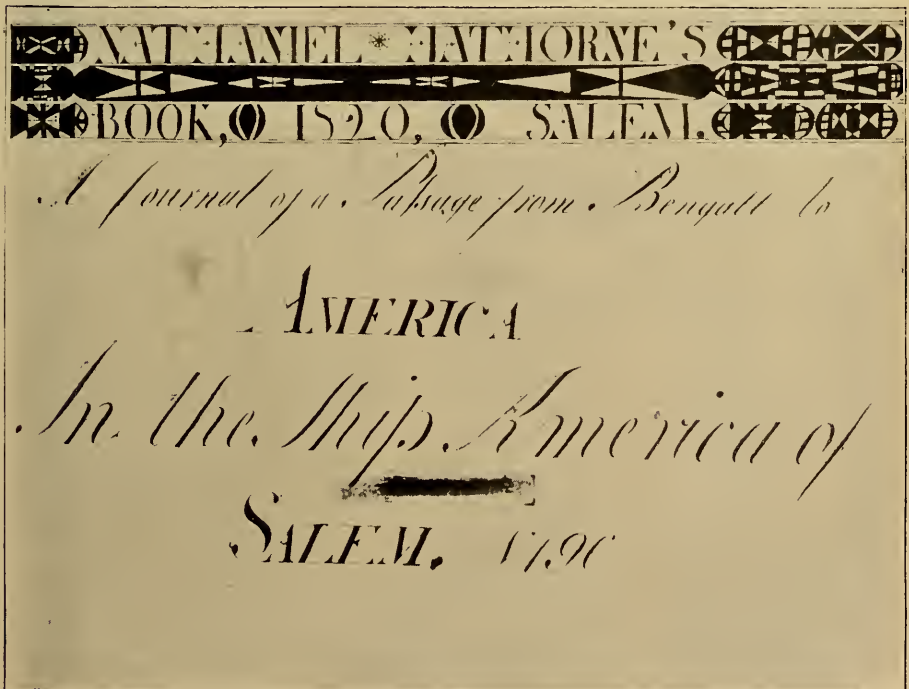 NATHANIEL * HATHORNE'S
BOOK, 1820, SALEM.
A Journal of a Paſsage from Bengall to
AMERICA
In the Ship America of
SALEM. 1796